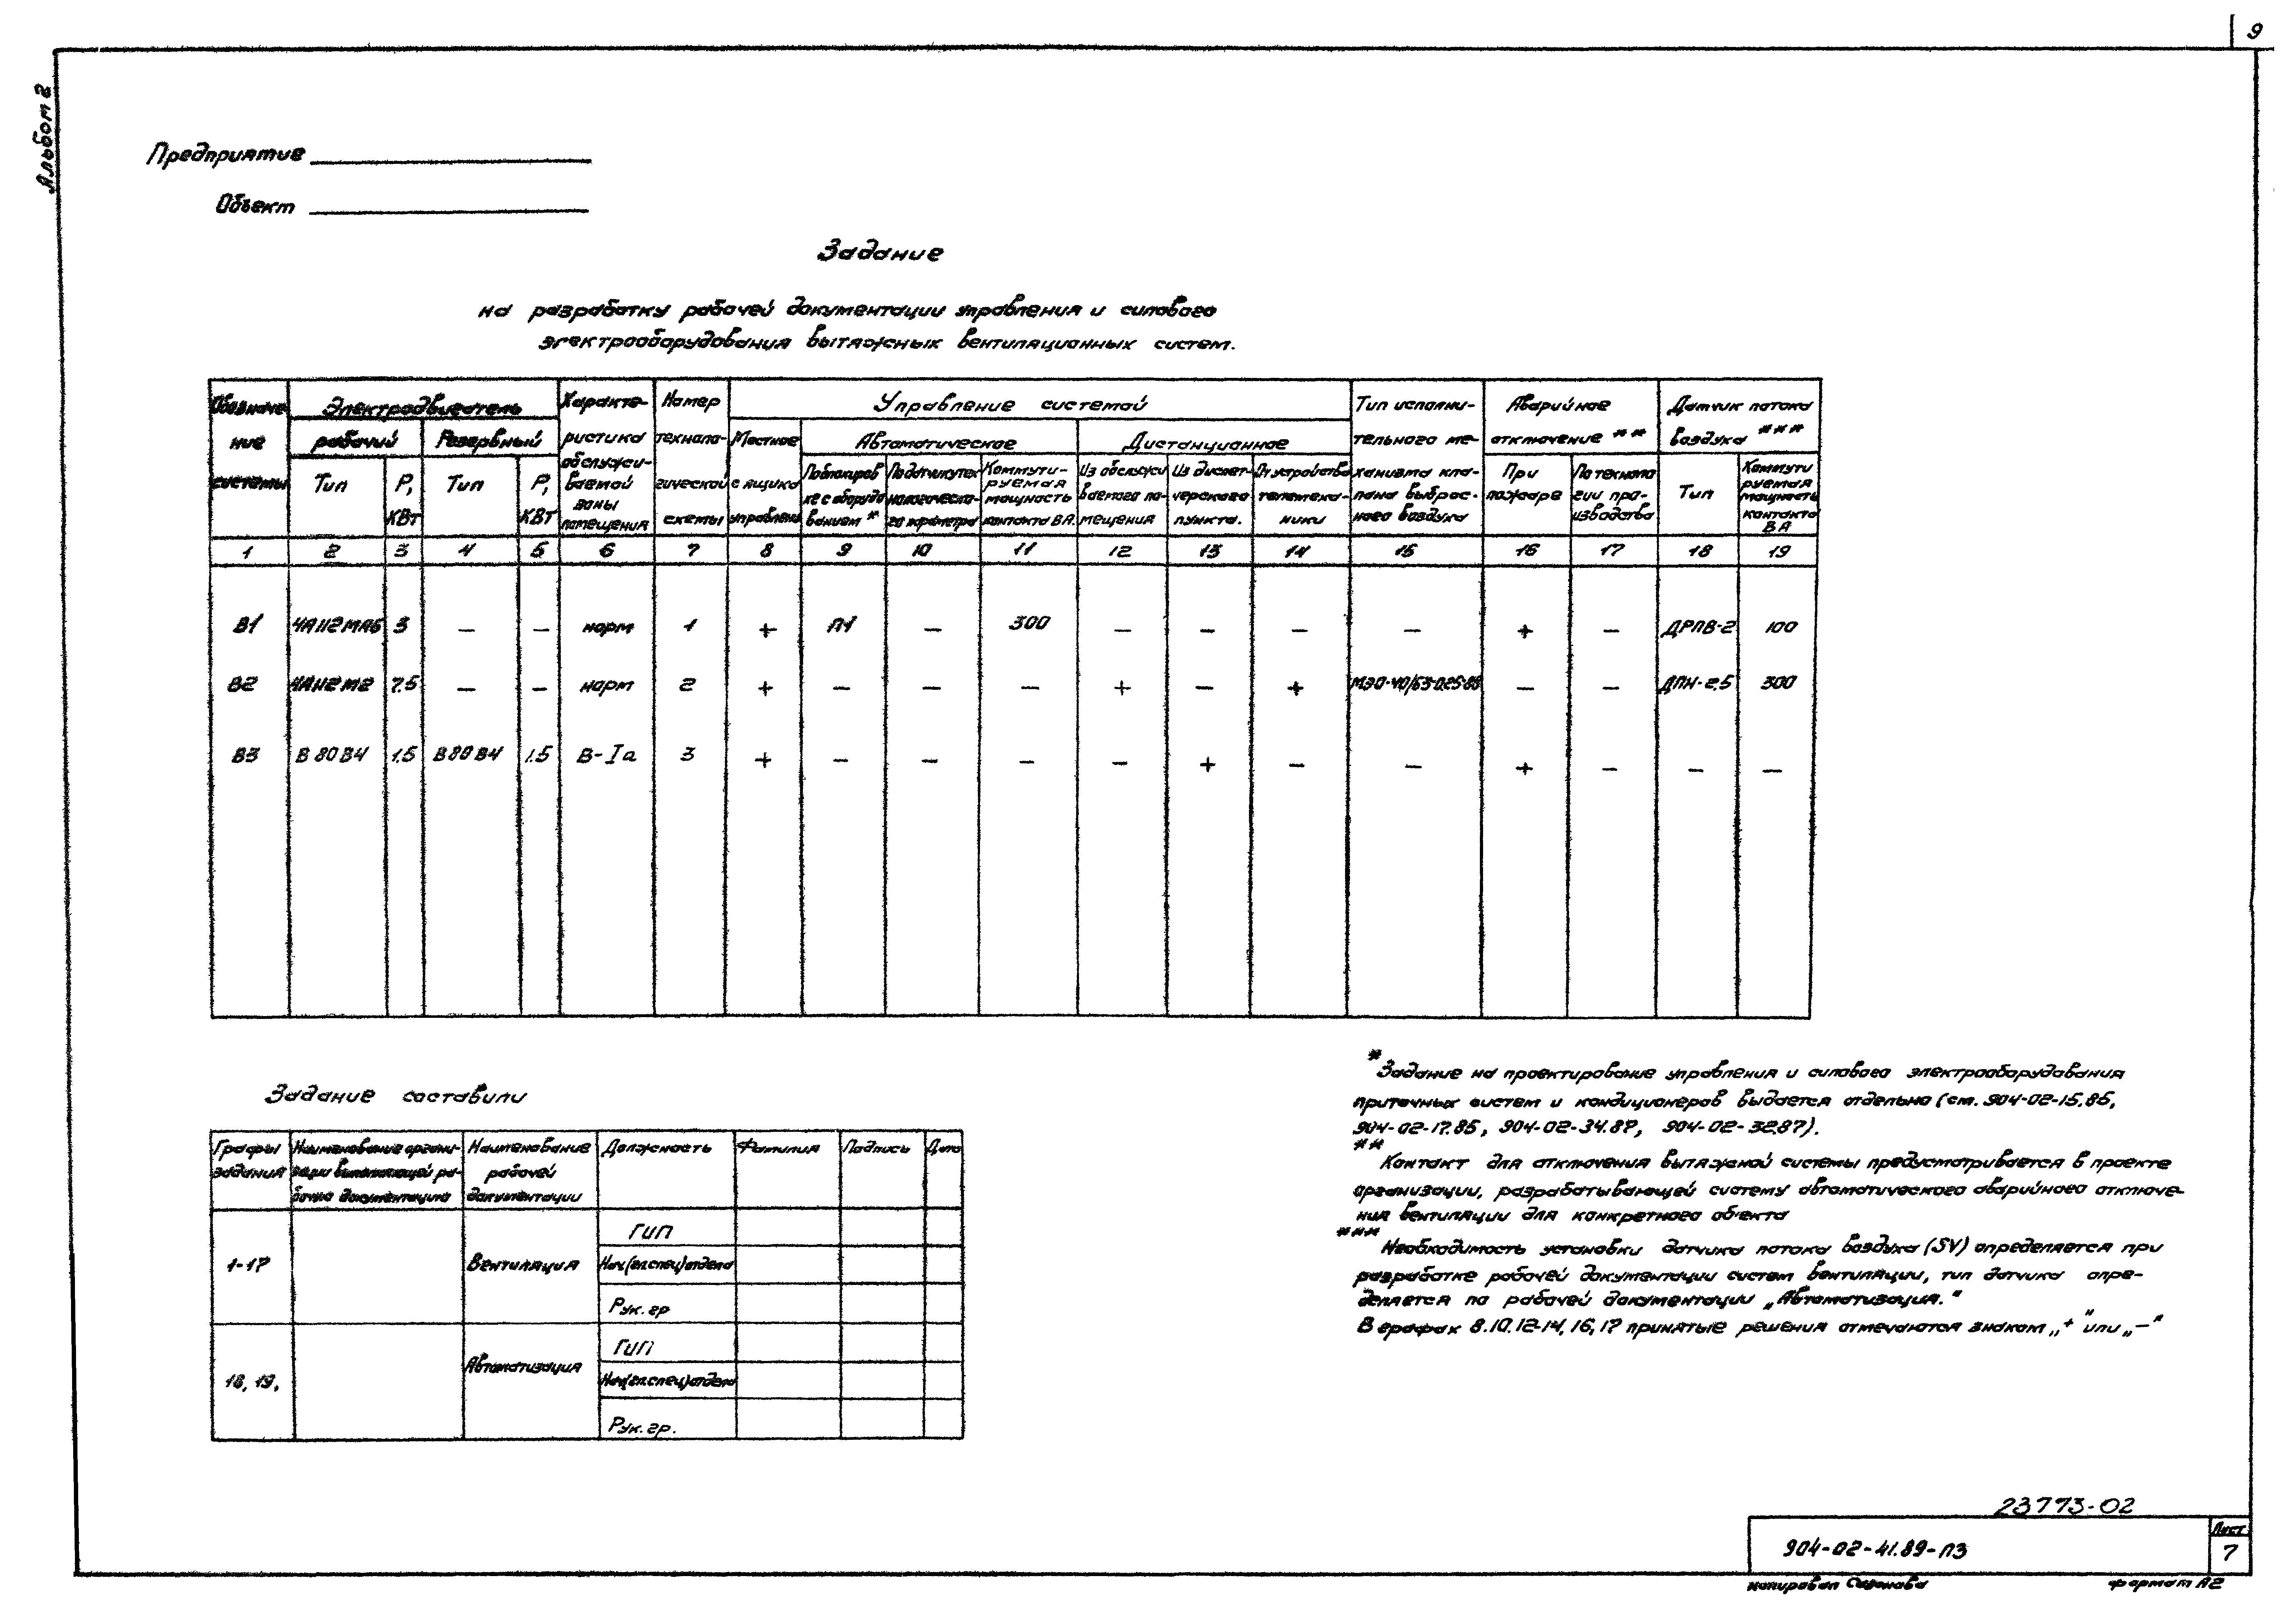 9
Альбом 2
Предприятие
Объект
Задание
на разработку рабочей документации управления и силового
электрооборудования вытяжных вентиляционных систем.
Обозначение системы
Электродвигатель
рабочий
Резервный
Тип
Р, КВт
Тип
Р, КВт
Характеристика обслуживаемой зоны помещения
Номер технологической схемы
Управление системой
Местное с ящика управления
Автоматическое
По блокировке с оборудованием *
По датчику технологического параметра
Коммутируемая мощность контакта ВА
Дистанционное
Из обслуживаемого помещения
Из диспетчерского пункта.
От устройства телемеханики
Тип исполнительного механизма клапана выбросного воздуха
Аварийное отключение **
При пожаре
По технологии производства
Датчик потока воздуха ***
Тип
Коммутируемая мощность контакта ВА
1 2 3 4 5 6 7 8 9 10 11 12 13 14 15 16 17 18 19
В1 4А112МА6 3 — — норм 1 + П1 — 300 — — — — + — ДРПВ-2 100
В2 4А112М2 7.5 — — норм 2 + — — — + — + МЭО-40/63-0.25-88 — — ДПН-2.5 300
В3 В80В4 1.5 В80В4 1.5 В-Iа 3 + — — — — + — — + — — —
Задание составили
Графы задания
Наименование организации выполняющей рабочую документацию
Наименование рабочей документации
Должность
Фамилия
Подпись
Дата
1-17
Вентиляция
ГИП
Нач.(гл.спец.) отдела
Рук. гр
18, 19,
Автоматизация
ГИП
Нач(гл.спец.) отдела
Рук. гр.
* Задание на проектирование управления и силового электрооборудования
приточных систем и кондиционеров выдается отдельно (см. 904-02-15.85,
904-02-17.85, 904-02-34.87, 904-02-32.87).
** Контакт для отключения вытяжной системы предусматривается в проекте
организации, разрабатывающей систему автоматического аварийного отключе-
ния вентиляции для конкретного объекта
*** Необходимость установки датчика потока воздуха (SV) определяется при
разработке рабочей документации систем вентиляции, тип датчика опре-
деляется по рабочей документации „Автоматизация."
В графах 8.10.12-14, 16, 17 принятые решения отмечаются знаком „+" или „—"
23773-02
904-02-41.89-ПЗ
Лист
7
копировал Сазонова
формат А2